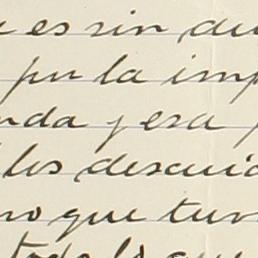 es sin du
por la imp
nda y esa
los descuid
no que tuv
todo lo que